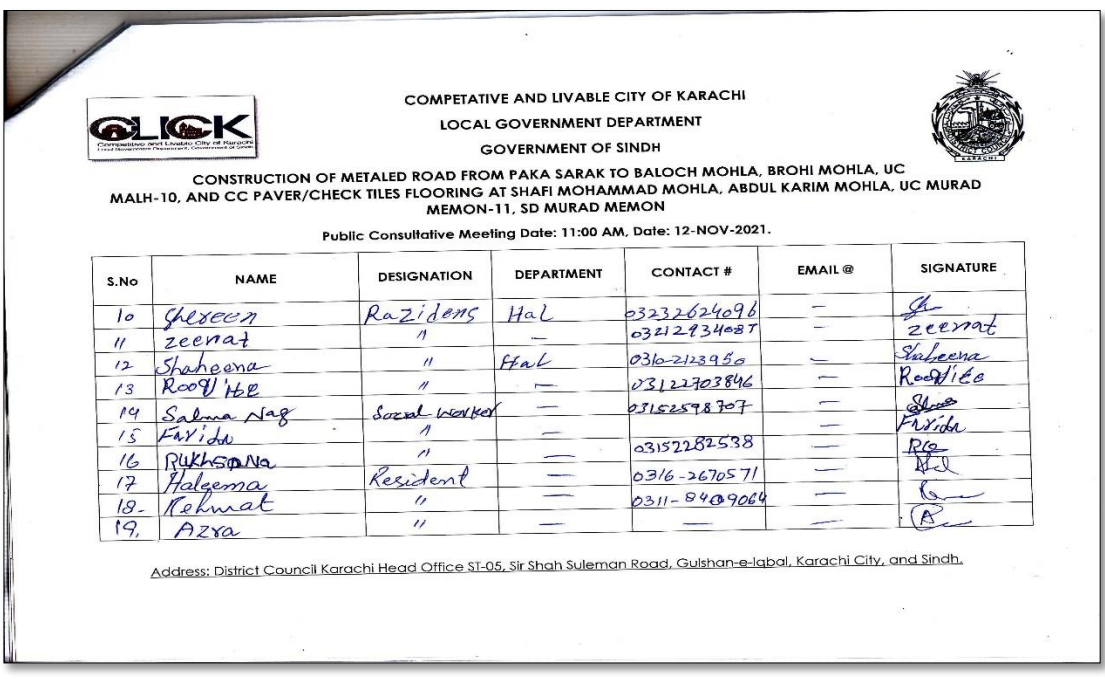 CLICK
Competitive and Livable City of Karachi
Local Government Department, Government of Sindh
DISTRICT COUNCIL
KARACHI
COMPETATIVE AND LIVABLE CITY OF KARACHI
LOCAL GOVERNMENT DEPARTMENT
GOVERNMENT OF SINDH
CONSTRUCTION OF METALED ROAD FROM PAKA SARAK TO BALOCH MOHLA, BROHI MOHLA, UC
MALH-10, AND CC PAVER/CHECK TILES FLOORING AT SHAFI MOHAMMAD MOHLA, ABDUL KARIM MOHLA, UC MURAD
MEMON-11, SD MURAD MEMON
Public Consultative Meeting Date: 11:00 AM, Date: 12-NOV-2021.
S.No NAME DESIGNATION DEPARTMENT CONTACT # EMAIL @ SIGNATURE
10 Shereen Razidens Hal 03232624096 — Sh
11 zeenat " — — zeenat
12 Shaheena " Hal 0310-2123950 — Shaheena
13 " — 03122703846 —
14 Salma Naz Social worker — 03152598707 —
15 Farida " — Farida
16 Rukhsana " — 03152282538 —
17 Haleema Resident — 0316-2670571 —
18- Rehmat " — 0311-8409064 —
19. Azra " — — — A
Address: District Council Karachi Head Office ST-05, Sir Shah Suleman Road, Gulshan-e-Iqbal, Karachi City, and Sindh.